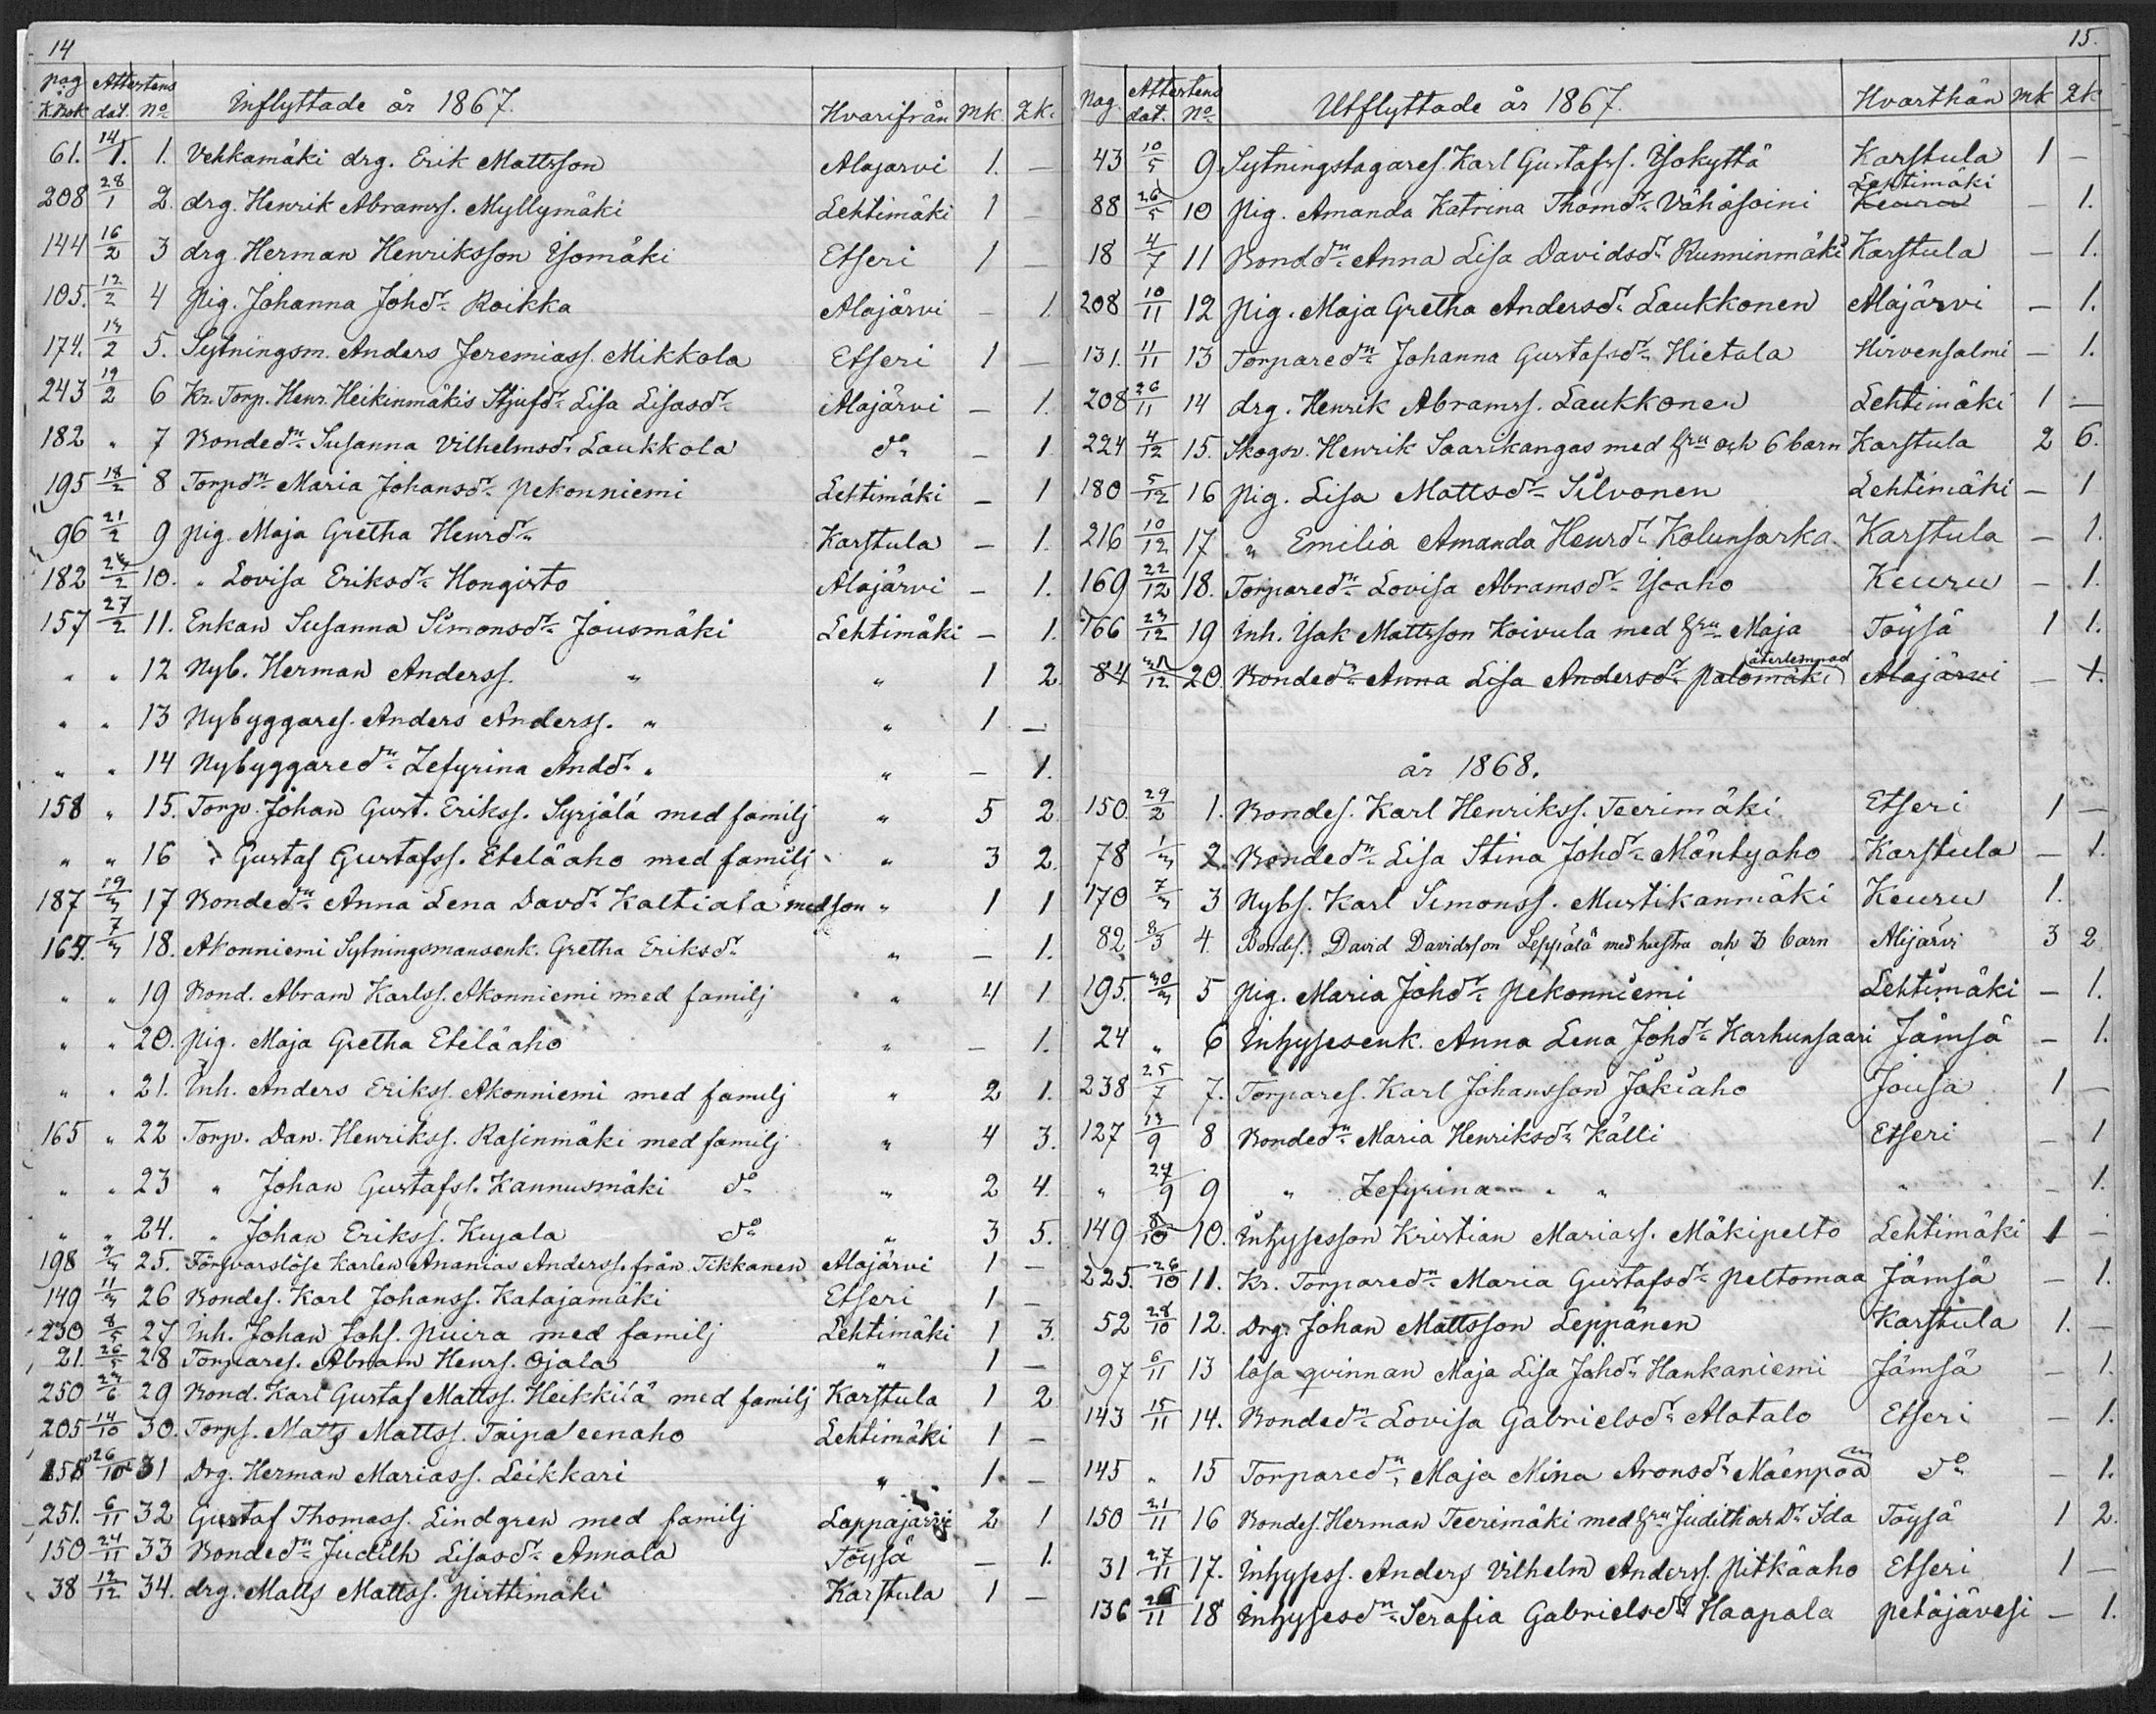 14
pag K.Bok Attestens dat. No Inflyttade år 1867. Hvarifrån Mk Qk.
61. 14/1. 1. Vehkamäki drg. Erik Mattsson Alajarvi 1. —
208 28/1 2. drg. Henrik Abramss. Myllymäki Lehtimäki 1 —
144 16/2 3 drg. Herman Henriksson Ysomäki Etseri 1 —
105. 12/2 4 Pig. Johanna Johdr Roikka Alajärvi — 1.
174. 13/2 5. Sytningsm. Anders Jeremiass. Mikkola Etseri 1 —
243 19/2 6 Kr. Torp. Henr. Heikinmäkis Stjufdr Lisa Lisasdr Alajärvi — 1.
182 " 7 Bondedn Susanna Vilhelmsdr Laukkola do — 1
195 18/2 8 Torpdn Maria Johansdr Pekonniemi Lehtimäki — 1
96 21/2 9 Pig. Maja Gretha Henrdr Karstula — 1.
182 24/2 10. " Lovisa Eriksdr Hongisto Alajärvi — 1.
157 27/2 11. Enkan Susanna Simonsdr Jousmäki Lehtimäki — 1.
" " 12 Nyb. Herman Anderss. " " 1 2.
" " 13 Nybyggares. Anders Anderss. " " 1 —
" " 14 Nybyggaredn Zefyrina Anddr " " — 1.
158 " 15. Torp. Johan Gust. Erikss. Syrjälä med familj " 5 2
" " 16 " Gustaf Gustafss. Eteläaho med familj " 3 2.
187 19/3 17 Bondedn Anna Lena Davdr Kaltiala med son " 1 1
164. 7/3 18. Akonniemi Sytningsmansenk. Gretha Eriksdr " — 1.
" " 19 Bond. Abram Karlss. Akonniemi med familj " 4 1
" " 20. Pig. Maja Gretha Eteläaho " — 1.
" " 21. Inh. Anders Erikss. Akonniemi med familj " 2 1.
165 " 22 Torp. Dan. Henrikss. Rasinmäki med familj " 4 3.
" " 23 " Johan Gustafss. Kannusmäki do " 2 4.
" " 24. " Johan Erikss. Kujala do " 3 5.
198 9/3 25. Försvarslöse Karlen Ananias Anderss. från Tikkanen Alajärvi 1 —
149 11/3 26 Bondes. Karl Johanss. Katajamäki Etseri 1 —
230 8/5 27 Inh. Johan Johs. Puira med familj Lehtimäki 1 3.
21. 26/5 28 Torpares. Abram Henrs. Ojala " 1 —
250 23/6 29 Bond. Karl Gustaf Mattss. Heikkilä med familj Karstula 1 2
205 14/10 30. Torps. Matts Mattss. Taipaleenaho Lehtimäki 1 —
158 26/10 31 Drg. Herman Mariass. Leikkari " 1. —
251. 6/11 32 Gustaf Thomass. Lindgren med familj Lappajärvi 2 1
150 24/11 33 Bondedn Judith Lisasdr Annala Töysä — 1.
38 12/12 34. drg. Matts Mattss. Pirttimäki Karstula 1 —
15.
Pag. Attestens dat. No Utflyttade år 1867. Hvarthän Mk Qk
43 10/5 9 Sytningstagares. Karl Gustafss. Ysokyttä Karstula 1 —
88 26/5 10 Pig. Amanda Katrina Thomdr Vähäsoini Lehtimäki Keuru — 1.
18 4/7 11 Bonddn Anna Lisa Davidsdr Runninmäki Karstula — 1.
208 10/11 12 Pig. Maja Gretha Andersdr Laukkonen Alajärvi — 1.
131. 11/11 13 Torparedn Johanna Gustafsdr Hietala Hirvensalmi — 1.
208 26/11 14 drg. Henrik Abramss. Laukkonen Lehtimäki 1 —
224 4/12 15. Skogsv. Henrik Saarikangas med hru och 6 barn Karstula 2 6.
180 5/12 16 Pig. Lisa Mattsdr Silvonen Lehtimäki — 1
216 10/12 17 " Emilia Amanda Henrdr Kolunsarka Karstula — 1.
169 22/12 18. Torparedn Lovisa Abramsdr Ysoaho Keuru — 1.
166 23/12 19 Inh. Ysak Mattsson Koivula med hru Maja Töysä 1 1.
84 31/12 20. Bondedn Anna Lisa Andersdr Palomäki (återlemnad) Alajärvi — 1.
år 1868.
150. 29/2 1. Bondes. Karl Henrikss. Teerimäki Etseri 1 —
78 1/3 2. Bondedn Lisa Stina Johdr Mäntyaho Karstula — 1.
170 7/3 3 Nybs. Karl Simonss. Mustikanmäki Keuru 1.
82 8/3 4. Bondes. David Davidsson Leppälä med hustru och 3 barn Alijärvi 3 2
195. 30/3 5 Pig. Maria Johdr Pekonniemi Lehtimäki — 1.
24 " 6 Inhysesenk. Anna Lena Johdr Karhunsaari Jämsä — 1.
238 25/7 7. Torpares. Karl Johansson Jokiaho Jousa 1 —
127 13/9 8 Bondedn Maria Henriksdr Källi Etseri — 1
" 24/9 9 " Zefyrina " " " — 1.
149 8/10 10. Inhysesson Kristian Mariass. Mäkipelto Lehtimäki 1 —
225. 26/10 11. Kr. Torparedn Maria Gustafsdr Peltomaa Jämsä — 1.
52 28/10 12. Drg. Johan Mattsson Leppänen Karstula 1. —
97 6/11 13 lösa qvinnan Maja Lisa Johdr Hankaniemi Jämsä — 1.
143 15/11 14. Bondedn Lovisa Gabrielsdr Alatalo Etseri — 1.
145 " 15 Torparedn Maja Mina Aronsdr Mäenpää do — 1.
150 21/11 16 Bondes. Herman Teerimäki med hru Judith och Dr Ida Töysä 1 2.
31 27/11 17. Inhysess. Anders Vilhelm Anderss. Pitkäaho Etseri 1 —
136 /11 18 Inhysesdn Serafia Gabrielsdr Haapala Petäjävesi — 1.